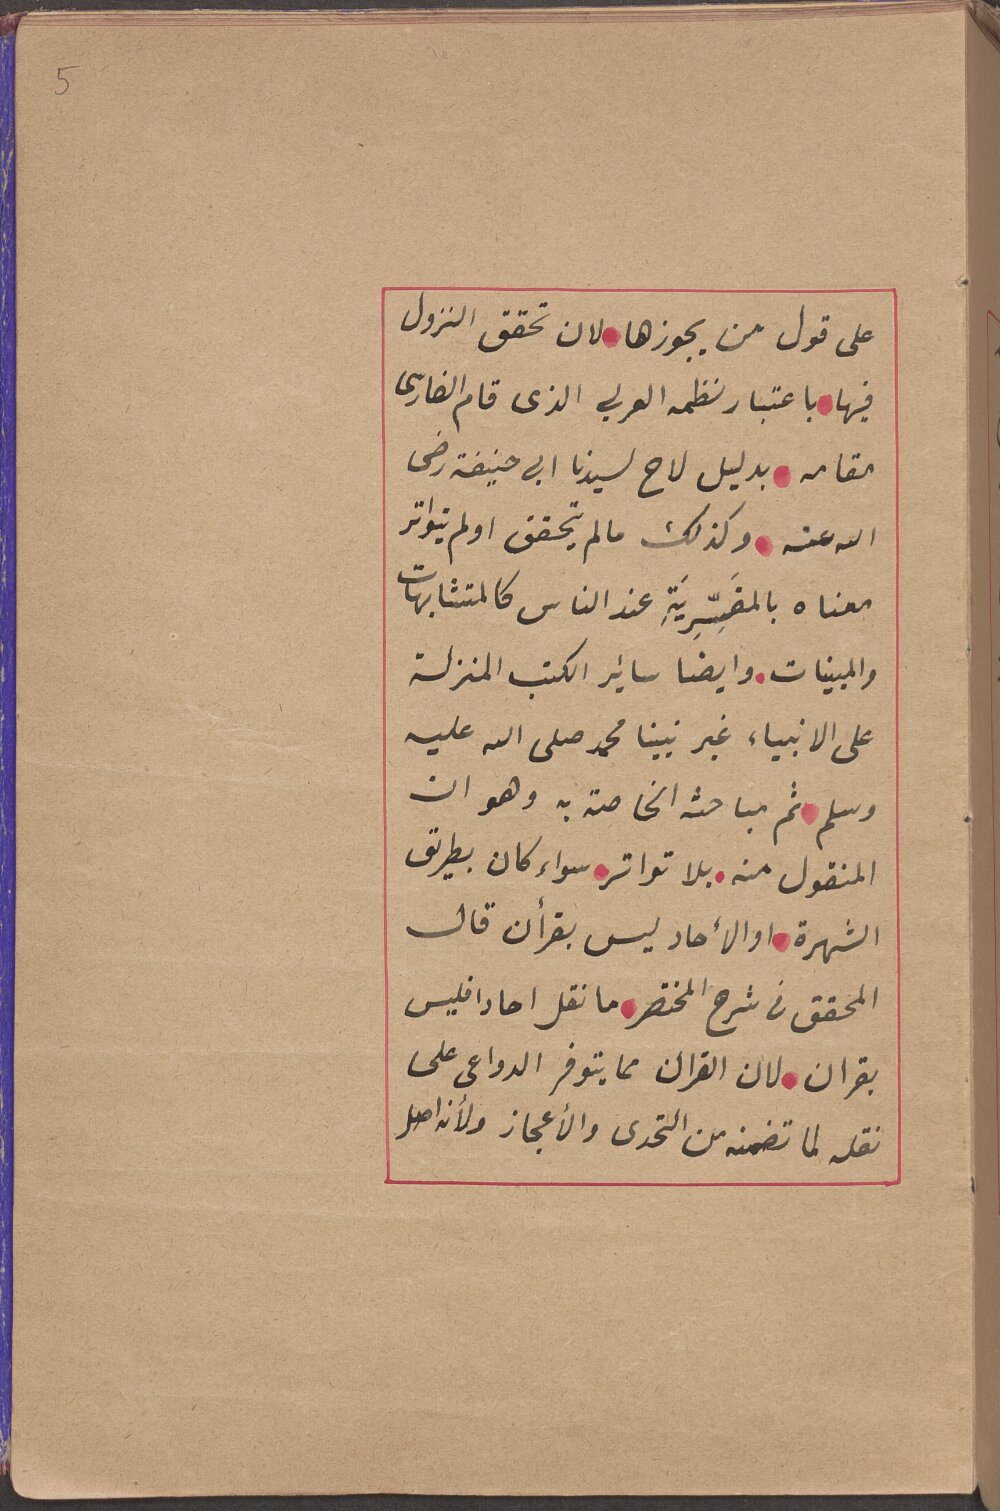 5
على قول من يجوزها • لان تحقق النزول
فيها • باعتبار نظمه العربي الذى قام الفارسى
مقامه • بدليل لاح لسيدنا ابى حنيفة رضى
الله عنه • وكذلك مالم يتحقق اولم يتواتر
معناه بالمفَسِّرِيَةِ عند الناس كالمتشابهات
والمبينات • وايضا سائر الكتب المنزلة
على الانبياء غير نبينا محمد صلى الله عليه
وسلم • ثم مباحثه الخاصة به وهو ان
المنقول منه • بلا تواتر • سواء كان بطريق
الشهرة • او الأحاد ليس بقرأن قال
المحقق فى شرح المختصر • ما نقل احادا فليس
بقران • لان القران مما يتوفر الدواعى على
نقله لما تضمنه من التحدى والأعجاز ولأنه اصل